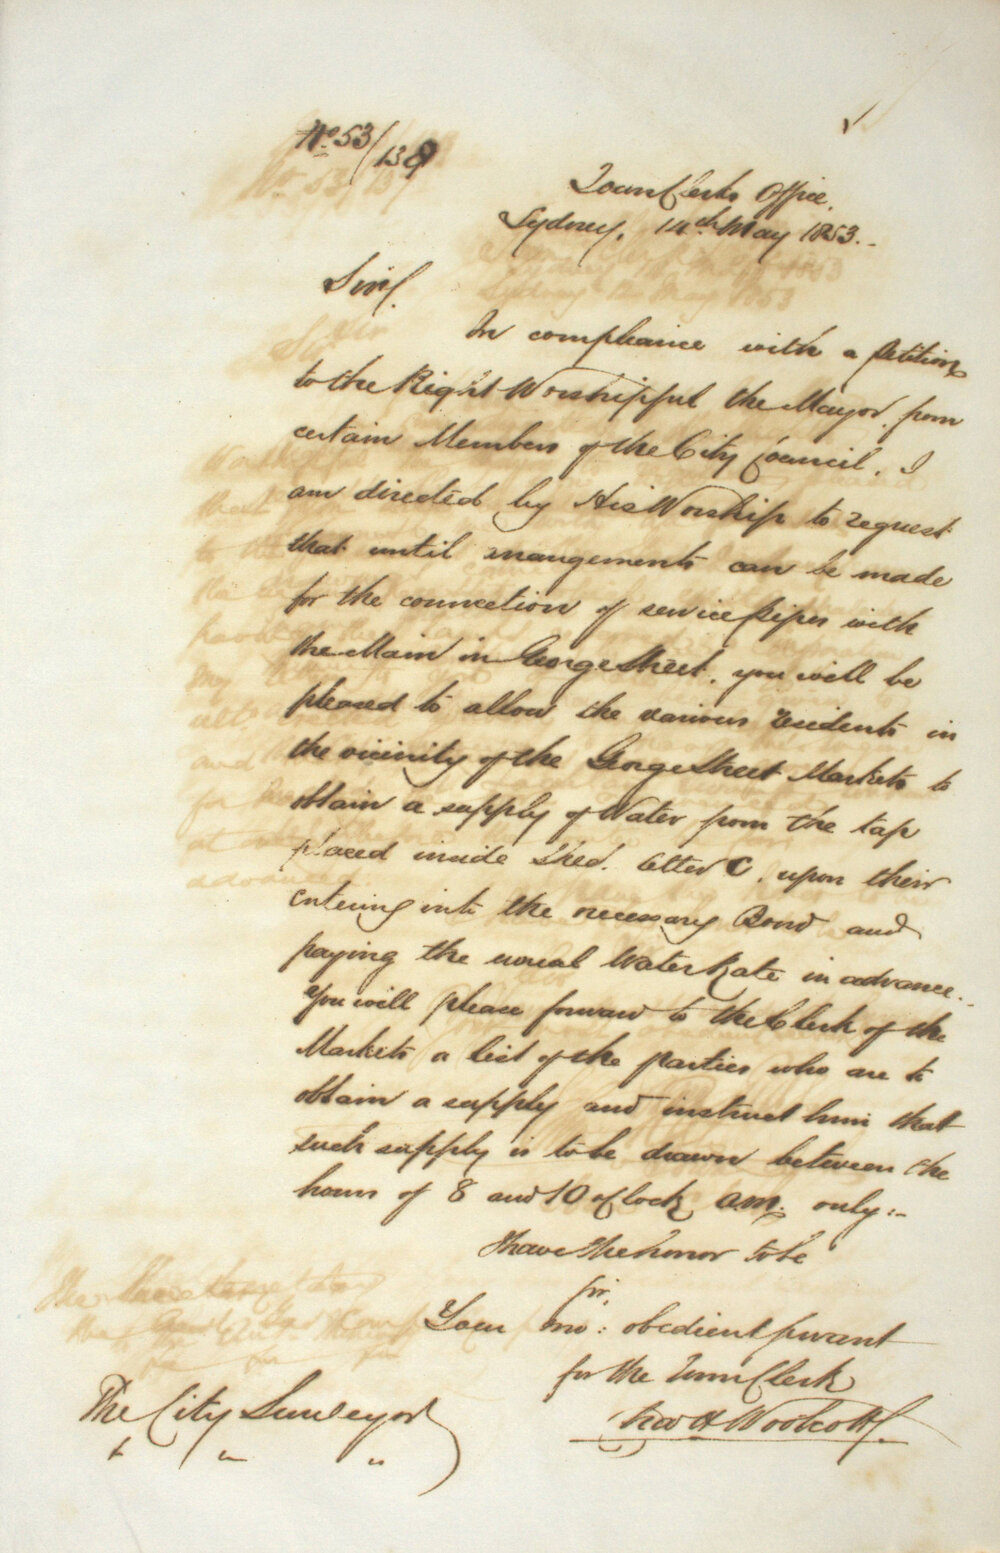 No 53/138
Town Clerks Office.
Sydney, 14th May 1853.
Sir,
In compliance with a Petition
to the Right Worshipful the Mayor, from
certain Members of the City Council, I
am directed by His Worship to request
that until arrangements can be made
for the connection of service pipes with
the Main in George Street, you will be
pleased to allow the various residents in
the vicinity of the George Street Markets to
obtain a supply of Water from the tap
placed inside Shed. letter C, upon their
entering into the necessary Bond and
paying the usual Water Rate in advance.
You will please forward to the Clerk of the
Markets a list of the parties who are to
obtain a supply and instruct him that
such supply is to be drawn between the
hours of 8 and 10 oClock a.m. only:-
I have the honor to be
Sir,
Your mo: obedient servant
for the Town Clerk
H Woolcott
The City Surveyor